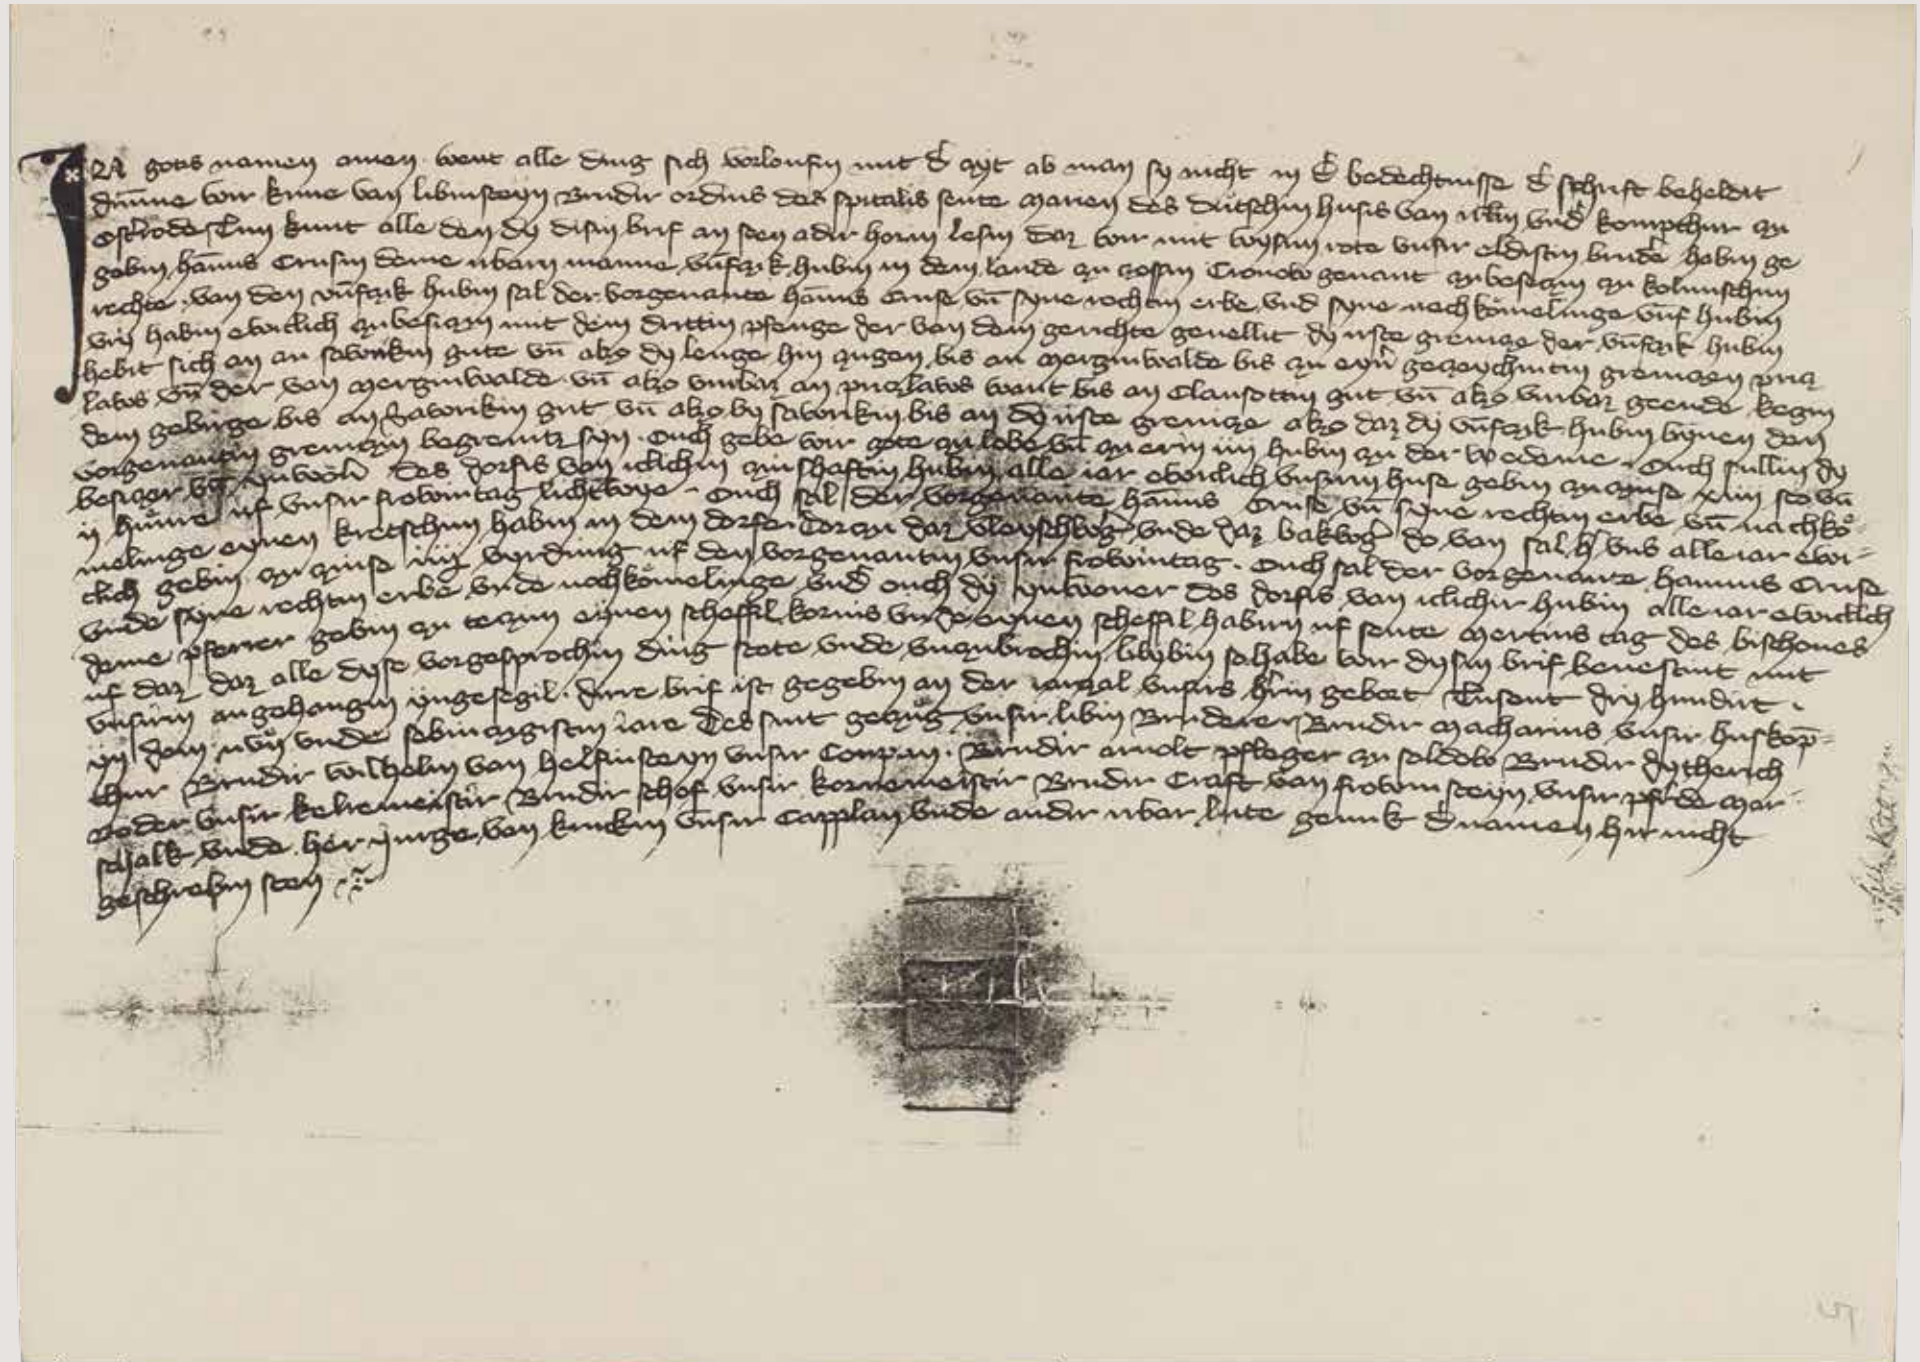 IN gotis namen amen. went alle ding sich vorloufin mit d' czyt ab man sy nicht in d' bedechtnisse d' schrift beheldit
dru̅me wir kune van libinsteyn Brudir ordins des spitalis sente marien des dutschin husis van ier̅lm vnd' kompthur zu
Ost'rode Tun kunt alle den dy disin brif an seen adir horin lesin daz wir mit wysim rote vnsir eldistin brud'e habin ge
gebin ha̅nns Crusin deme irbarn manne vu̅fczik hubin in dem lande zu sossin Cronow genant zu besetzin zu kolmischim
rechte. van den vu̅fczik hubin sal der vorgenante ha̅nns Cruse vn̅ syne rechtin erbe vnd syne nochkomelinge vu̅f hubin
vry habin ewiclich zu besiczin mit dem drittin pfenge der van dem gerichte geuellit dy irste grenicze der vu̅fczik hubin
hebit sich an an sawrikin gute vn̅ also dy lenge hin zugen bis an merginwalde bis zu eyn' geczeychintin greniczen pricz
laws vn̅ der van merginwalde vn̅ also vmbar an priczlaws want bis an Clausottin gut vn̅ also vmbar geende kegin
dem gebirge bis an Sawrikin gut vn̅ also by sawrikin bis an dy irste grenicze also daz dy vu̅fczik hubin bynen den
vorgenantin greniczin begrenitz syn. Ouch gebe wir gote zu lobe vn̅ zu erin iiii hubin zu der wedeme. Ouch sullin dy
besiczer vn̅ ynwon' des dorfis van iclichin zinshaftin hubin alle iar ewiclich vnsirm huse gebin zu zinse xiiii sco vn̅
ij hunre uf vnsir frowintag lichtwye. Ouch sal der vorgenante ha̅nns Cruse vn̅ syne rechtin erbe vn̅ nachko-
melinge eynen kretschim habin in dem dorfe. Dorzu daz vleyschwerg vnde daz bakwerg do van sal h' vns alle iar ewi-
clich gebin zu zinse iiij vyrdung uf den vorgenantin vnsir frowintag. Ouch sal der vorgenante hannus Cruse
vnde syne rechtin erbe vnde nochkomelinge vnd' ouch dy ynwoner des dorfis van iclichir hubin alle iar ewiclich
deme pferrer gebin zu teczim eynen scheffil kornis vnde eynen scheffil habirn uf sente mertins tag des bischoues
uf daz daz alle dyse vorgesprochin ding stete vnde vnzubrochin blybin so habe wir dysin brif beuestint mit
vnsirm angehangin yngesegil. dirre brif ist gegebin an der iarczal vnsirs h'rin gebort Tusent dryhundirt.
yn dem uvn vnde sobinczigistin iare Des sint geczug vnsir libin Brudere Brudir Macharius vnsir huskop̅-
thur Brudir wilhelm van helfinsteyn vnsir Conpan. Brudir arnolt pfleger zu soldow Brudir dytherich
Roder vnsir kelremeistir Brudir schof vnsir kornemeistir Brudir Craft van frowinsteyn vnsir pf'rde mar-
schalk vnde her yurge van krickin vnsir Capplan vnde andir irbar lute genuk d' namen hir nicht
geschrebin steen